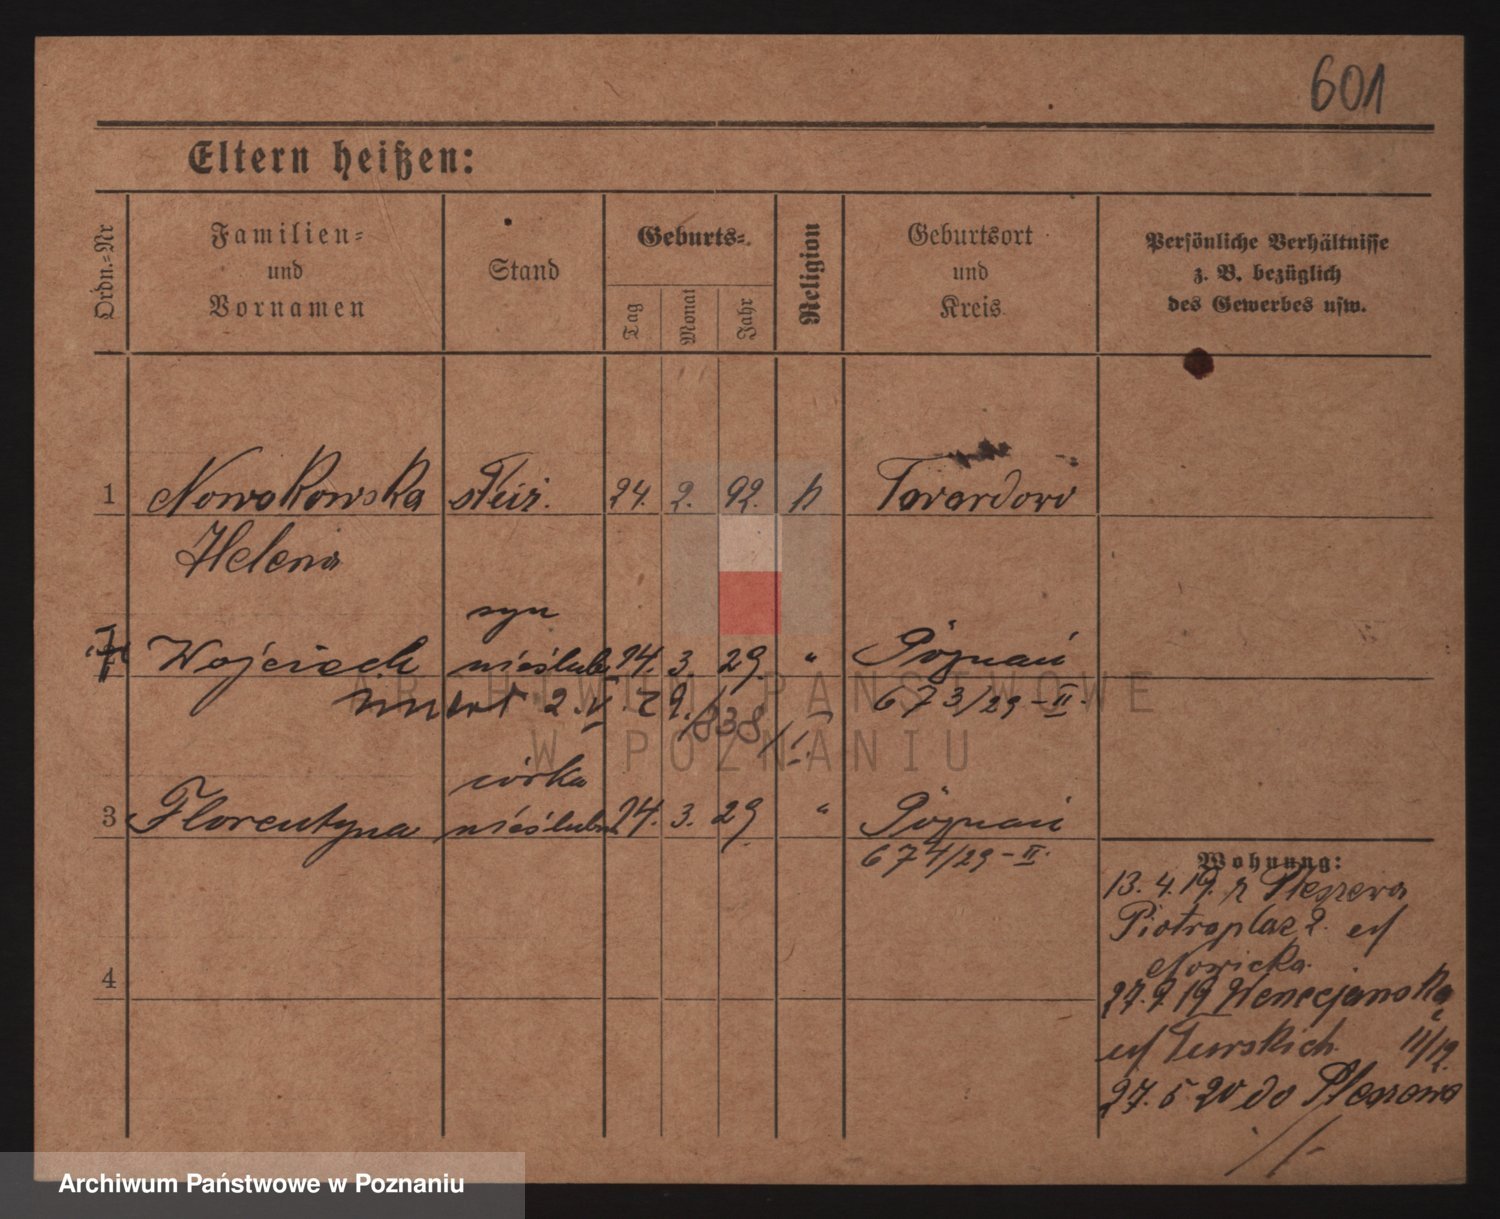 601
Eltern heißen:
Ordn.=Nr
Familien=
und
Vornamen
Stand
Geburts=
Tag
Monat
Jahr
Religion
Geburtsort
und
Kreis
Persönliche Verhältnisse
z. B. bezüglich
des Gewerbes usw.
1 Nowakowska służ. 24. 2. 92. k Twardowo
Helena
syn
Wojciech nieślubn 24. 3. 29. " Poznań
umarł 2. V. 29. 838/I. 673/29-II.
córka
3 Florentyna nieślubn 24. 3. 29. " Poznań
674/29-II.
4
Wohnung:
13. 4. 19. z Pleszewa
Piotraplac 2.
Nowicka
27. 9. 19 Wenecjanska
Turskich 11/12.
27. 5. 20 do Pleszewa
ARCHIWUM PAŃSTWOWE
W POZNANIU
Archiwum Państwowe w Poznaniu